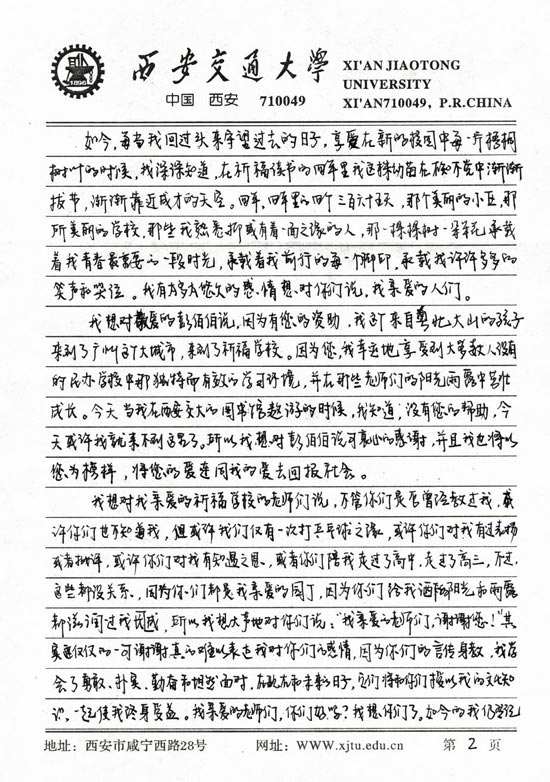 1896
西安交通大学
XI'AN JIAOTONG
UNIVERSITY
中国 西安 710049
XI'AN710049, P.R.CHINA
如今,每当我回过头来守望过去的日子,享受在新的校园中每一片梧桐
树叶的时候,我深深知道,在祈福读书的四年里我这棵幼苗在不知不觉中渐渐
拔节,渐渐靠近成才的天空。四年,四年里的四个三百六十五天,那个美丽的小丘,那
所美丽的学校,那些我熟悉抑或有着一面之缘的人,那一棵棵树一朵朵花,承载
着我青春最重要的一段时光,承载着我前行的每一个脚印,承载我许许多多的
笑声和哭泣。我有好多好多的感情想对你们说,我亲爱的人们。
我想对敬爱的彭伯伯说,因为有您的资助,我这个来自大山的孩子
来到了广州这个大城市,来到了祈福学校。因为您,我幸运地享受到大多数人没有
的民办学校中那独特而有效的学习环境,并在那些老师们的阳光雨露中茁壮
成长。今天当我在西安交大的图书馆遨游的时候,我知道,没有您的帮助,今
天或许我就来不到这里了。所以我想对彭伯伯说句衷心的感谢,并且我也将以
您为榜样,将您的爱连同我的爱去回报社会。
我想对我亲爱的祈福学校的老师们说,不管你们是否曾经教过我,或
许你们也不知道我,但或许我们仅有一次打乒乓球之缘,或许你们对我有过表扬
或者批评,或许你们对我有知遇之恩,或者你们陪我走过了高中,走过了高三,不过,
这些都没关系,因为你们都是我亲爱的园丁,因为你们给我洒的阳光和雨露
都滋润过我成,所以我想大声地对你们说:“我亲爱的老师们,谢谢您!”其
实这仅仅的一句谢谢真的难以表达我对你们的感情,因为你们的言传身教,我学
会了勇敢、朴实、勤奋和坦然面对,在现在和未来的日子,它们将和你们授以我的文化知
识,一起使我终身受益。我亲爱的老师们,你们好吗?我想你们了。如今的我仍然
地址:西安市咸宁西路28号 网址:WWW.xjtu.edu.cn 第 2 页